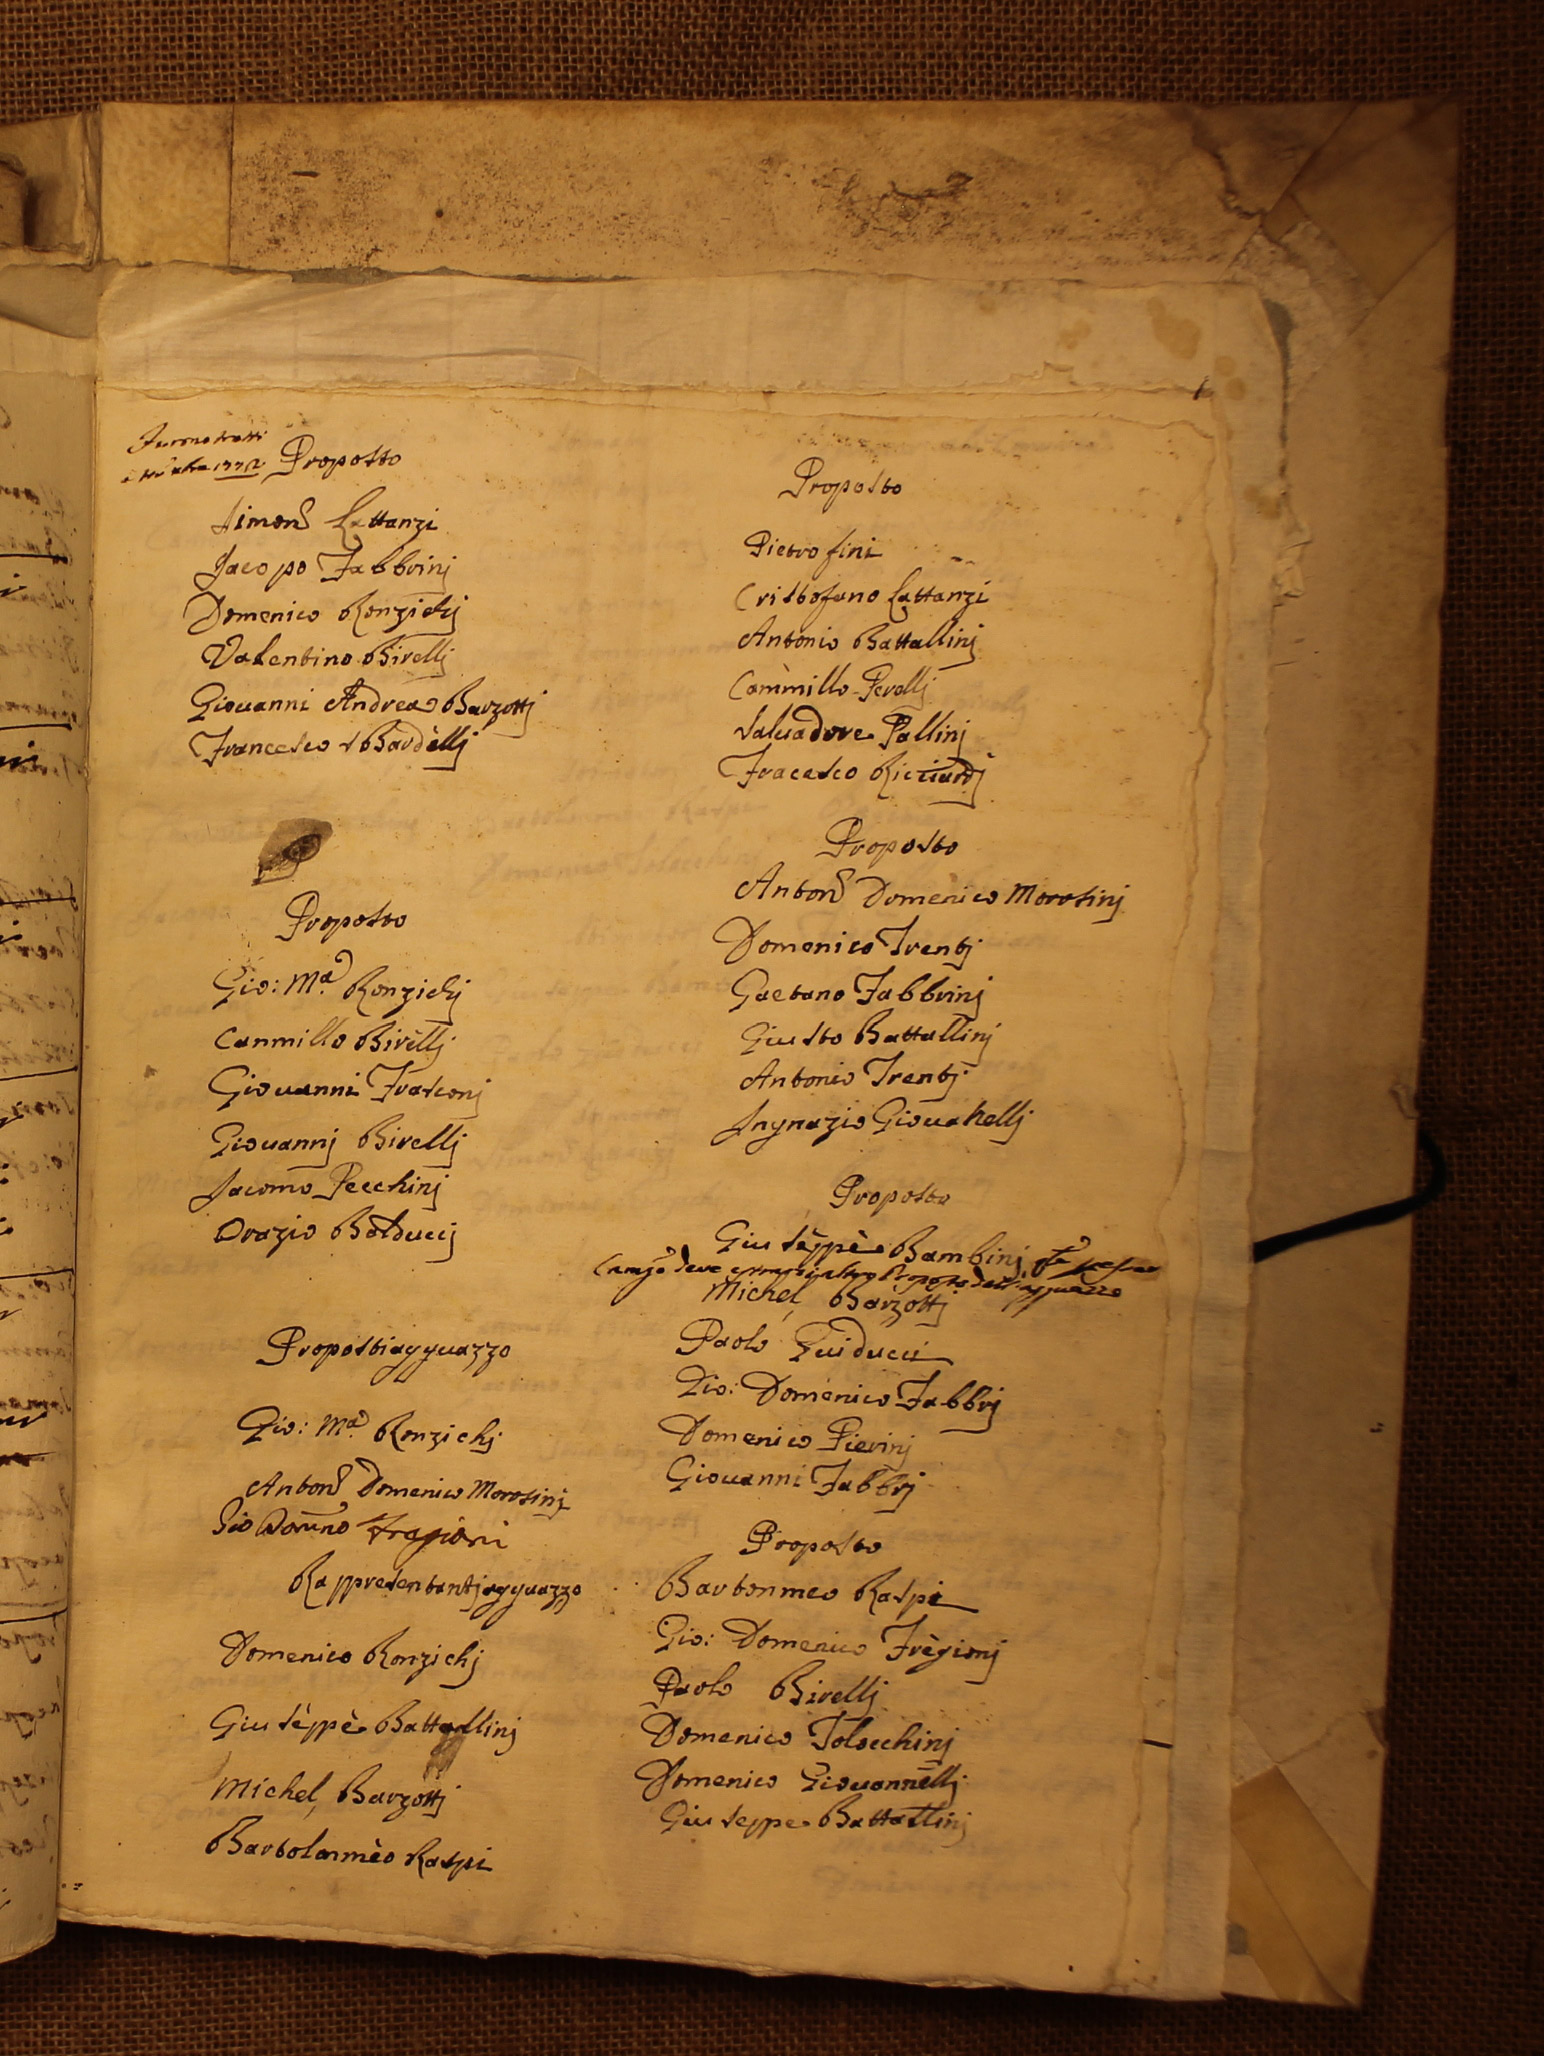 Furno tratti
Proposto
Simone Lattanzi
Jacopo Fabbrinj
Domenico Ronzichj
Valentino Birellj
Giouanni Andrea Barzottj
Francesco Bardèllj
Proposto
Gio: Ma. Ronzichj
Canmillo Birèllj
Giouanni Frasconj
Giouannj Birellj
Jacomo Pecchinj
Orazio Balduccj
Propostiagguazzo
Gio: Ma. Ronzichj
Antone Domenico Morosinj
Gio Domno Fregioni
Rappresentantjagguazzo
Domenico Ronzichj
Giusèppè Battallinj
Michel, Barzottj
Bartolanmèo Raspi
Proposto
Pietro fini
Cristofano Lattanzi
Antonio Battallinj
Cammillo Perellj
Saluadore Pallinj
Fracesco Ricciardj
Proposto
Antone Domenico Morosinj
Domenico Trentj
Gaetano Fabbrinj
Giusto Battallinj
Antonio Trentj
Ingnazio Giouanellj
Proposto
Giusèppè Bambinj
Michel, Barzottj
Paolo Guiducci
Gio: Domenico Fabbrj
Domenico Pierinj
Giouanni Fabbrj
Proposto
Bartonmeo Raspi
Gio: Domenico Frègionj
Paolo Birellj
Domenico Tolocchinj
Domenico Giouannèllj
Giuseppe Battallinj